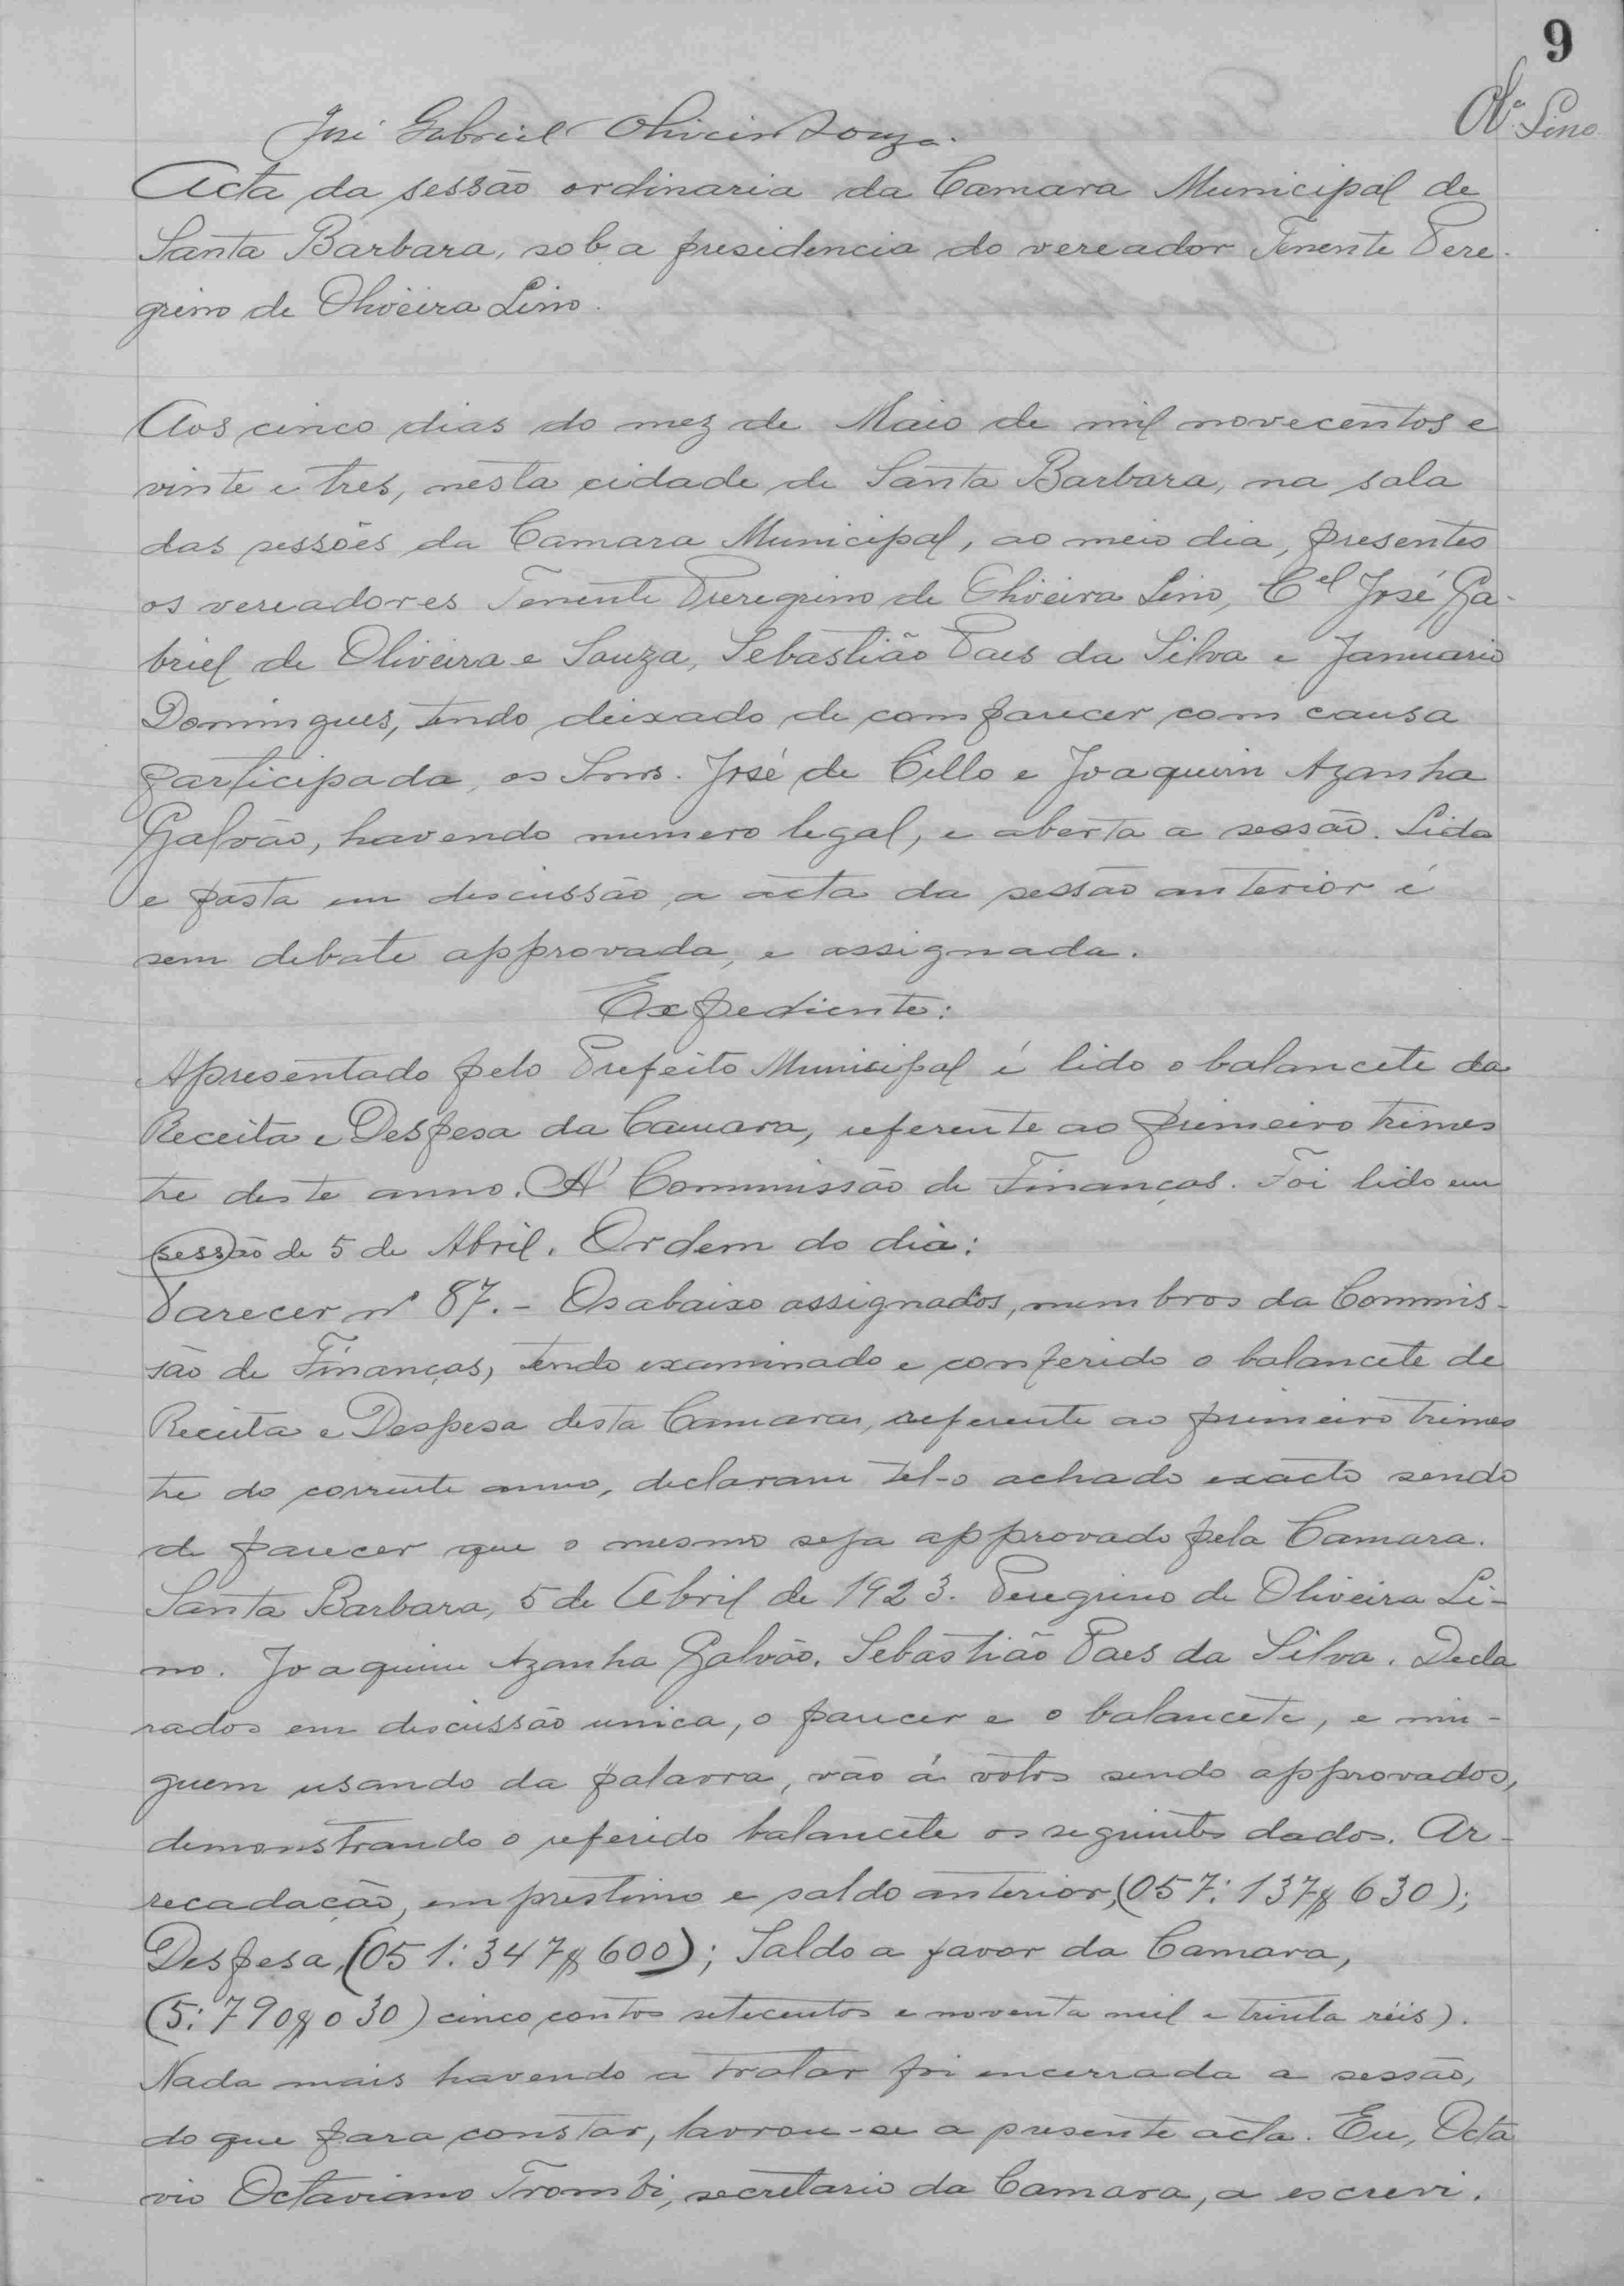 9
Ol.ª Lino
José Gabriel Oliveira Souza.
Acta da sessão ordinaria da Camara Municipal de
Santa Barbara, sob a presidencia do vereador Tenente Pere-
grino de Oliveira Lino.
Aos cinco dias do mez de Maio de mil novecentos e
vinte e tres, nesta cidade de Santa Barbara, na sala
das sessões da Camara Municipal, ao meio dia, presentes
os vereadores Tenente Peregrino de Oliveira Lino, Cel José Ga-
briel de Oliveira e Souza, Sebastião Paes da Silva e Januario
Domingues, tendo deixado de comparecer com causa
participada, os Snrs. José de Cillo e Joaquim Azanha
Galvão, havendo numero legal, e aberta a sessão. Lida
e posta em discussão a acta da sessão anterior é
sem debate approvada, e assignada.
Expediente:
Apresentado pelo Prefeito Municipal é lido o balancete da
Receita e Despesa da Camara, referente ao primeiro trimes
tre deste anno. A' Commissão de Finanças. Foi lido em
sessão de 5 de Abril. Ordem do dia:
Parecer nº 87. - Os abaixo assignados, membros da Commis-
são de Finanças, tendo examinado e conferido o balancete de
Receita e Despesa desta Camara, referente ao primeiro trimes
tre do corrente anno, declaram tel-o achado exacto sendo
de parecer que o mesmo seja approvado pela Camara.
Santa Barbara, 5 de Abril de 1923. Peregrino de Oliveira Li-
no. Joaquim Azanha Galvão. Sebastião Paes da Silva. Decla
rados em discussão unica, o parecer e o balancete, e nin-
guem usando da palavra, vão á votos sendo approvados,
demonstrando o referido balancete os seguintes dados. Ar-
recadação, emprestimo e saldo anterior, (057:137$630);
Despesa, (051:347$600); Saldo a favor da Camara,
(5:790$030) cinco contos setecentos e noventa mil e trinta réis).
Nada mais havendo a tratar foi encerrada a sessão,
do que para constar, lavrou-se a presente acta. Eu, Octa
vio Octaviano Trombi, secretario da Camara, a escrevi.